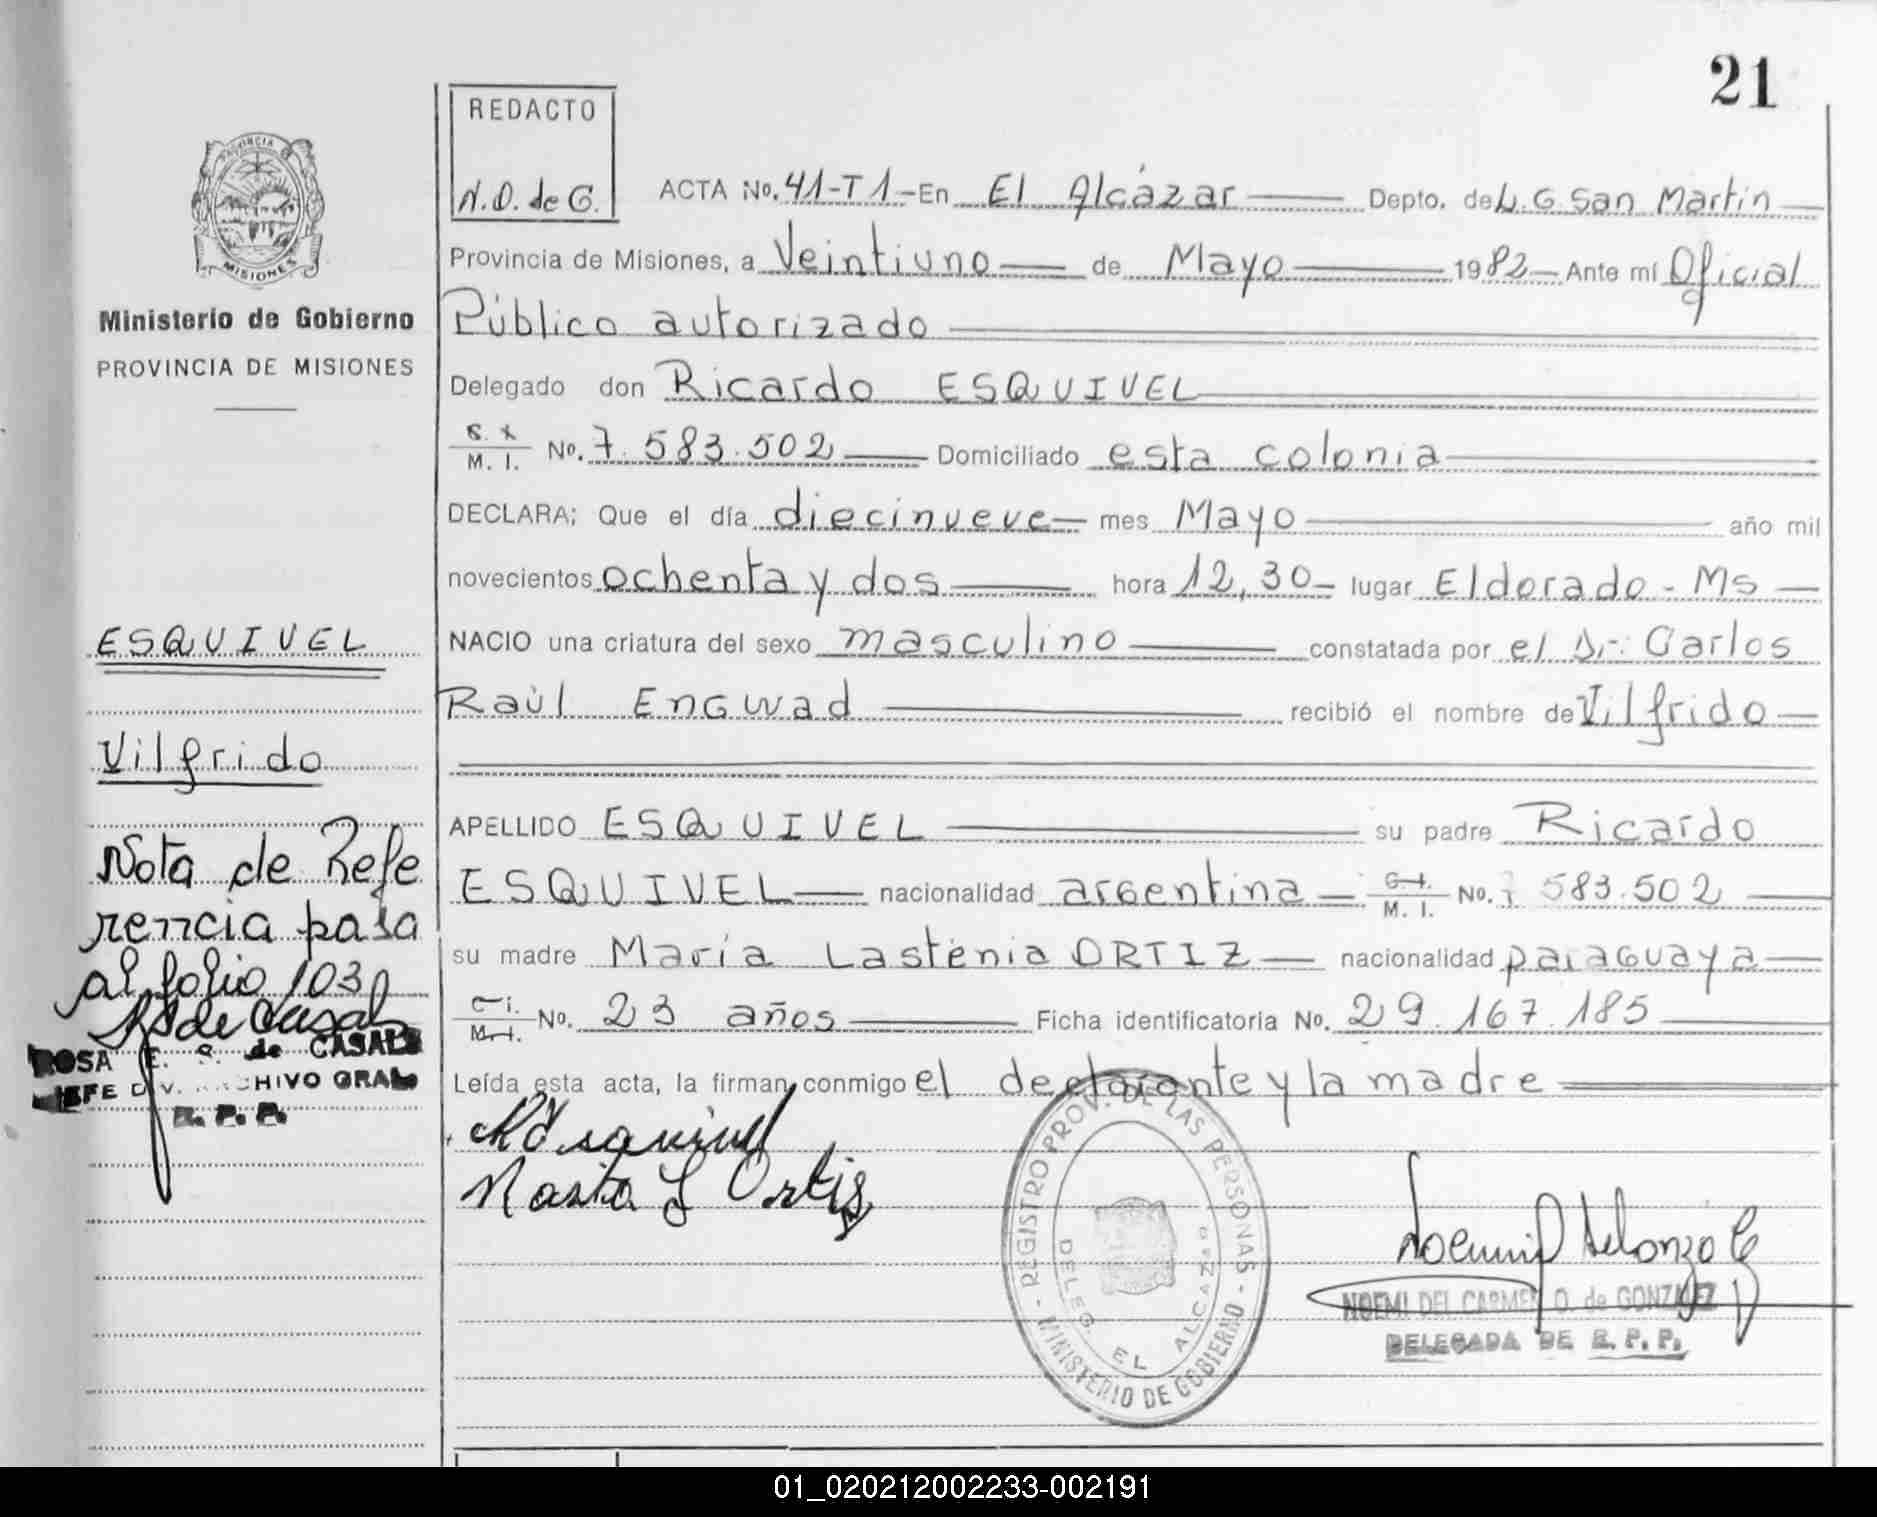 21
REDACTO
N.O. de G.
ACTA No. 41-T1- En El Alcázar Depto. de L.G San Martín
Provincia de Misiones, a Veintiuno de Mayo 1982 Ante mí Oficial
Público autorizado
Delegado don Ricardo ESQUIVEL
M. I. No. 7.583.502 Domiciliado esta colonia
DECLARA; Que el día diecinueve mes Mayo año mil
novecientos ochenta y dos hora 12,30 lugar Eldorado - Ms
NACIO una criatura del sexo masculino constatada por el Dr: Carlos
Raúl Engwad recibió el nombre de Vilfrido
APELLIDO ESQUIVEL su padre Ricardo
ESQUIVEL nacionalidad argentina M. I. No. 7 583.502
su madre María Lastenia ORTIZ nacionalidad paraguaya
C. I. M. I. No. 23 años Ficha identificatoria No. 29.167.185
Leída esta acta, la firman conmigo el declarante y la madre
REsquivel
Maria L Ortis
REGISTRO PROV. DE LAS PERSONAS - MINISTERIO DE GOBIERNO -
DELEG. EL ALCAZAR
NOEMI DEL CARMEN O. de GONZALEZ
DELEGADA DE R. P. P.
PROVINCIA
MISIONES
Ministerio de Gobierno
PROVINCIA DE MISIONES
ESQUIVEL
Vilfrido
Nota de Refe
rencia pasa
al folio 103
ROSA E. S. de CASALS
JEFE DIV. ARCHIVO GRAL
R. P. P.
01_020212002233-002191